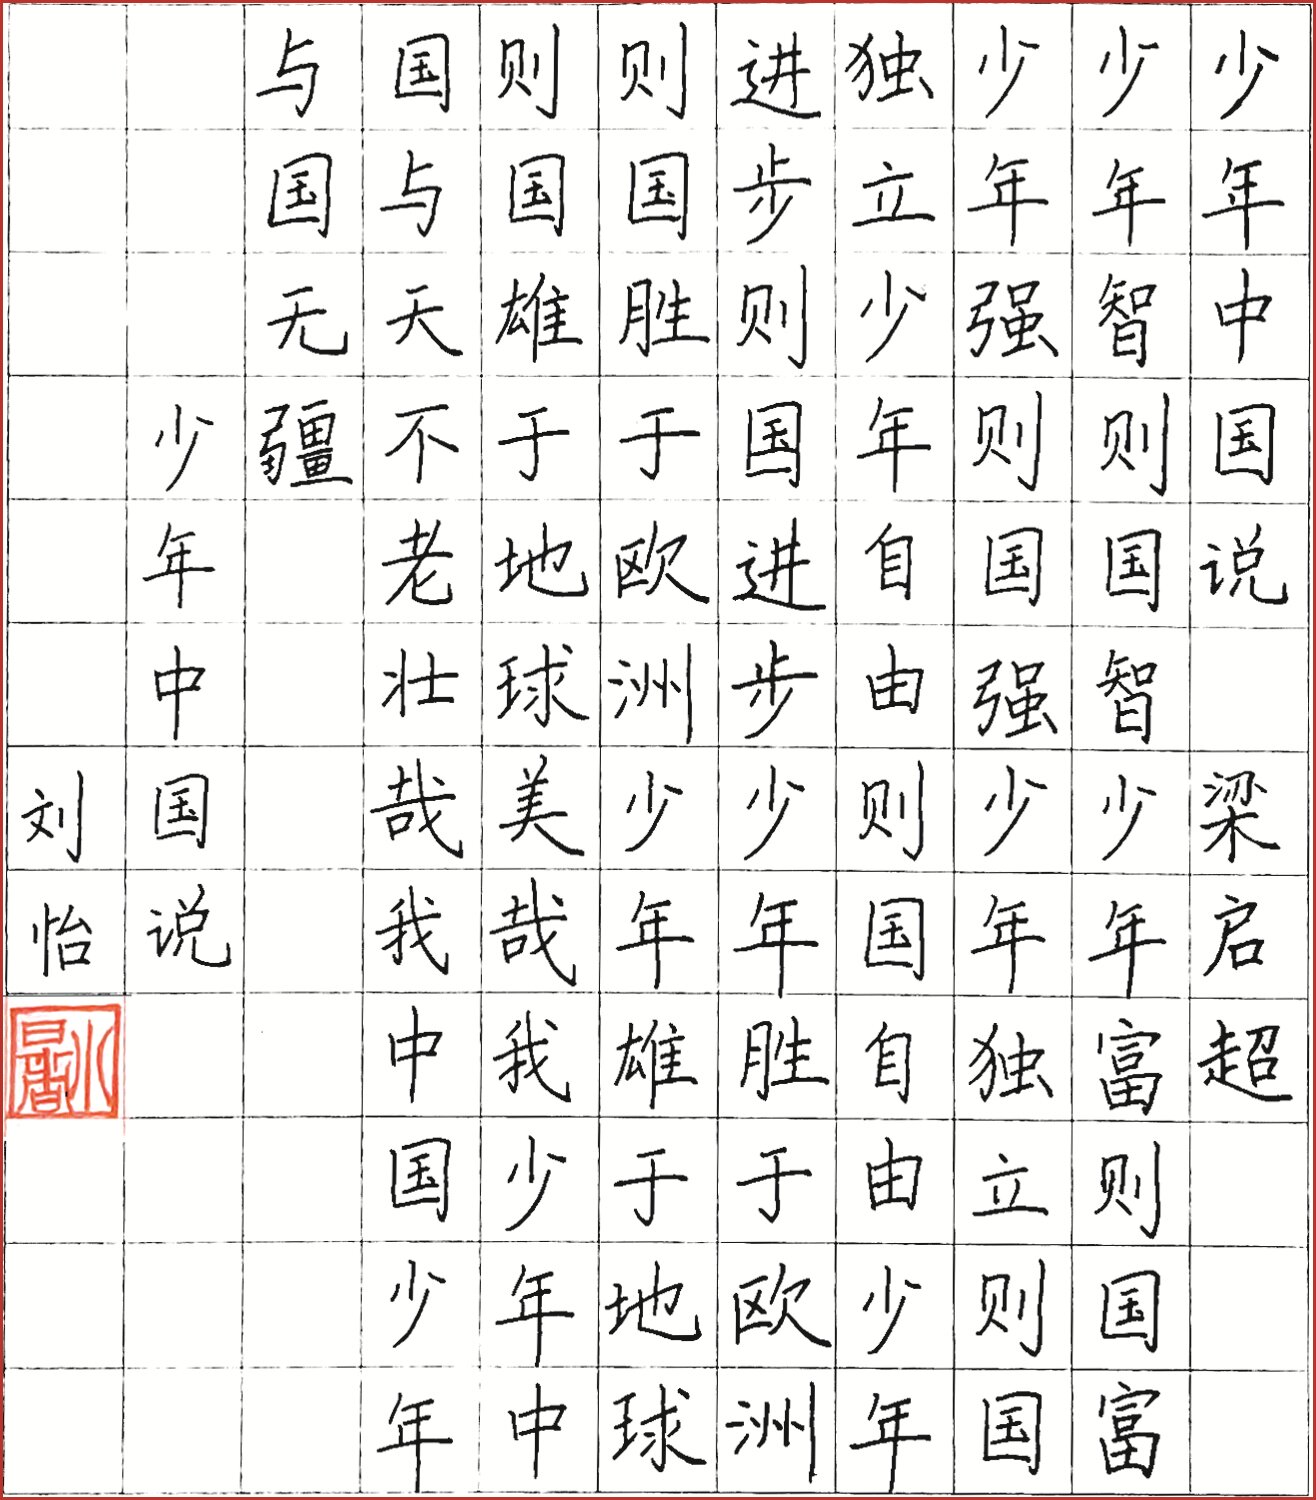 少年中国说 梁启超
少年智则国智少年富则国富
少年强则国强少年独立则国
独立少年自由则国自由少年
进步则国进步少年胜于欧洲
则国胜于欧洲少年雄于地球
则国雄于地球美哉我少年中
国与天不老壮哉我中国少年
与国无疆
少年中国说
刘怡